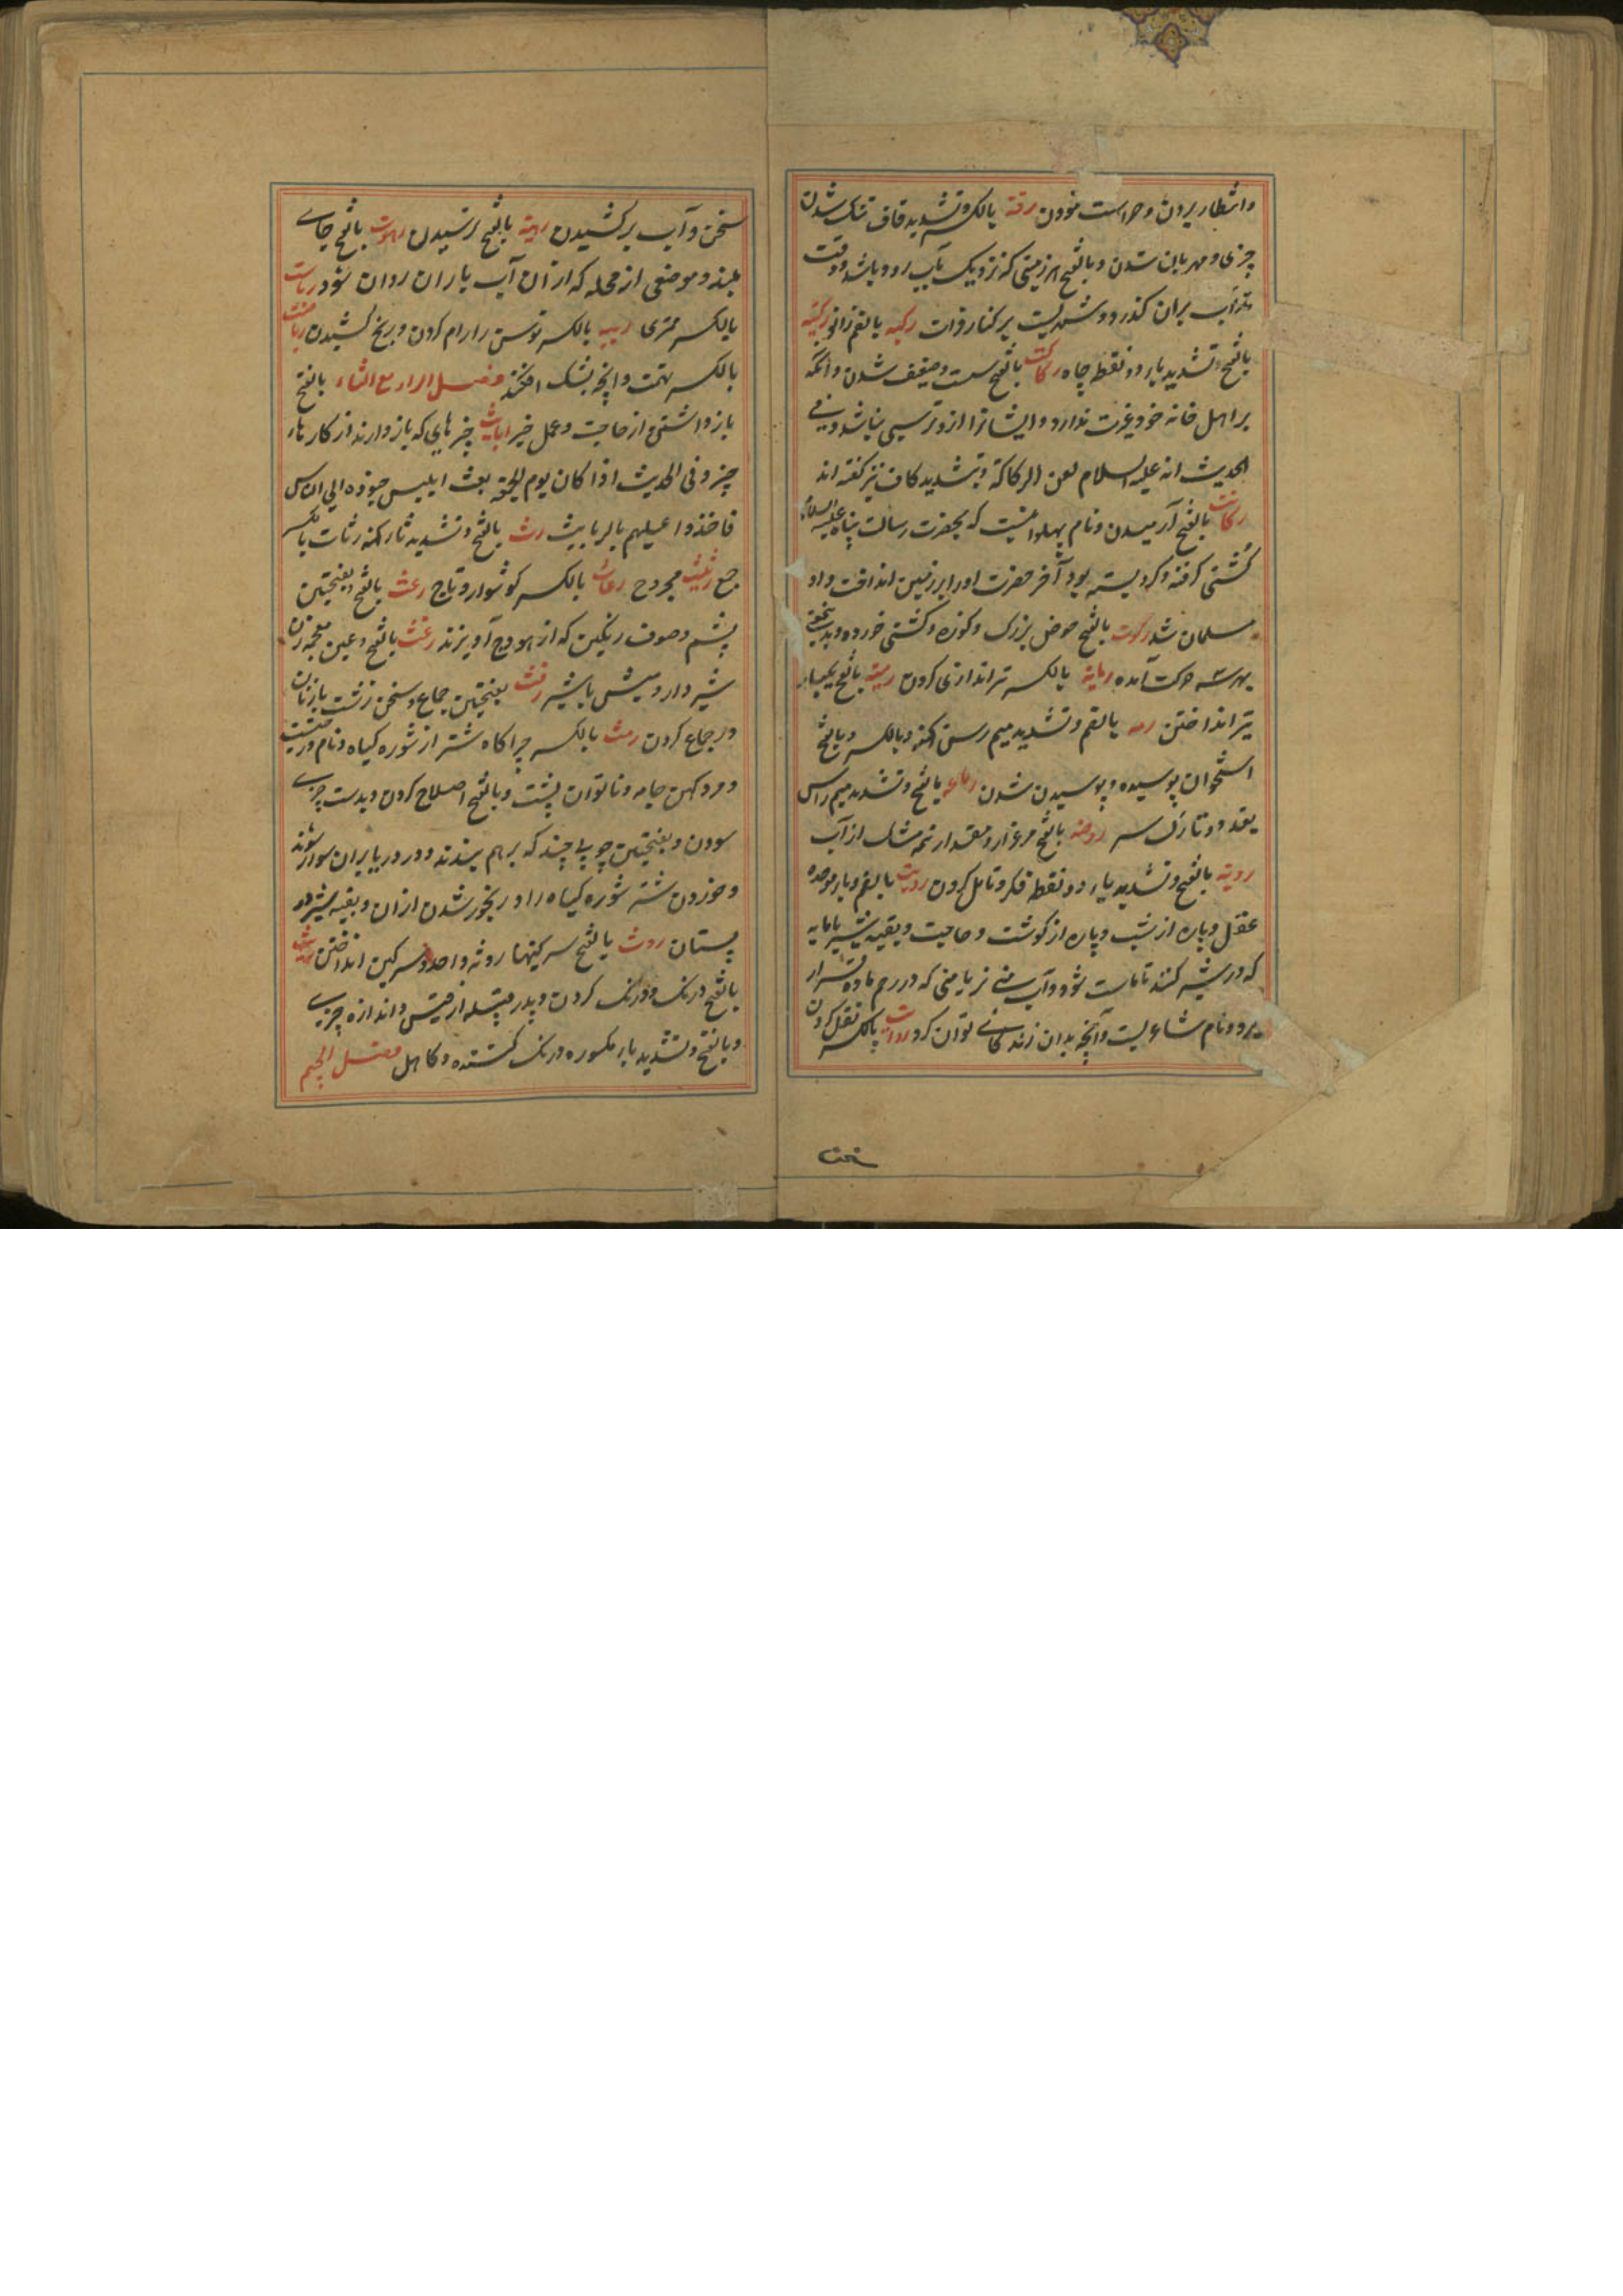 وانتظار بردن و حراست نمودن رقة بالکسر و تشدید قاف تنک شدن
چیزی و مهربان شدن و بالفتح هر زمینی که نزدیک بآب رود باشد و وقت
مد آب بران کذرد و شهریست بر کنار فرات رکبه بالضم زانو رکیة
بالفتح و تشدید یاء دو نقطه چاه رکاکت بالفتح سست و ضعیف شدن و آنکه
بر اهل خانه خود غیرت ندارد و ایشانرا ازو ترسی نباشد و فی
الحدیث انه علیه السلام لعن الرکاکة و بتشدید کاف نیز کفته اند
رکانت بالفتح آرمیدن و نام پهلوانیست که بحضرت رسالت پناه علیه السلام
کشتی کرفته و کرو بسته بود آخر حضرت او را بر زمین انداخت و او
مسلمان شد رکوت بالفتح حوض بزرک و کوزه و کشتی خورد و بدینمعنی
بهر سه حرکت آمده رمایة بالکسر تیراندازی کردن رمیة بالفتح یکبار
تیر انداختن رمه بالضم و تشدید میم رسن کهنه و بالکسر و بالفتح
استخوان پوسیده و پوسیدن شدن رماعه بالفتح و تشدید میم راس
یعد و و تارک سر روضه بالفتح مرغزار و مقدار نیمه مشک از آب
رویة بالفتح و تشدید یاء دو نقطه فکر و تامل کردن روبت بالضم و باء موحده
عقل و پاره از شب و پاره از کوشت و حاجت و بقیه شیر با مایه
که در شیر کنند تا ماست شود و آب منی نر یا منی که در رحم ماده قرار
برد و نام شاعریست و آنچه بدان زندکانی توان کرد روایت بالکسر نقل کردن
سخن
سخن و آب برکشیدن رهبة بالفتح ترسیدن رهوت بالفتح جای
بلند و موضعی از محله که از آن آب باران روان شود ریاست
بالکسر مهتری ریبه بالکسر توسن را رام کردن و رنج کشیدن ریاضت
بالکسر تهمت و آنچه بشک افکند فصل الراء مع الثاء بالفتح
باز داشتن از حاجت و عمل خیر ربایث چیزهای که باز دارند از کارها
چیز و فی الحدیث اذا کان یوم الجمعة بعث ابلیس جنوده الی الناس
فاخذوا علیهم بالربایث رث بالفتح و تشدید ثاء کهنه رثاث بالکسر
جمع رثیث مجروح رعاث بالکسر کوشوار و تاج رعث بالفتح و بفتحتین
پشم و صوف رنکین که از هودج آویزند رغث بالفتح و غین معجمه زن
شیر دار و میش با شیر رفث بفتحتین جماع و سخن زشت با زنان
در جماع کردن رمث بالکسر چراکاه شتر از شوره کیاه و نام درختیست
و مرد کهن جامه و ناتوان پشت و بالفتح اصلاح کردن و بدست چیزی
سودن و بفتحتین چوبی چند که بر هم بندند و در دریا بران سوار شوند
و خوردن شتر شوره کیاه را و رنجور شدن ازان و بقیه شیر در
پستان روث بالفتح سرکینها روثه واحد و سرکین انداختن ریث
بالفتح درنک و درنک کردن و پدر قبیله از قیس و اندازه چیزی
و بالفتح و تشدید یاء مکسوره درنک کننده و کاهل فصل الجیم